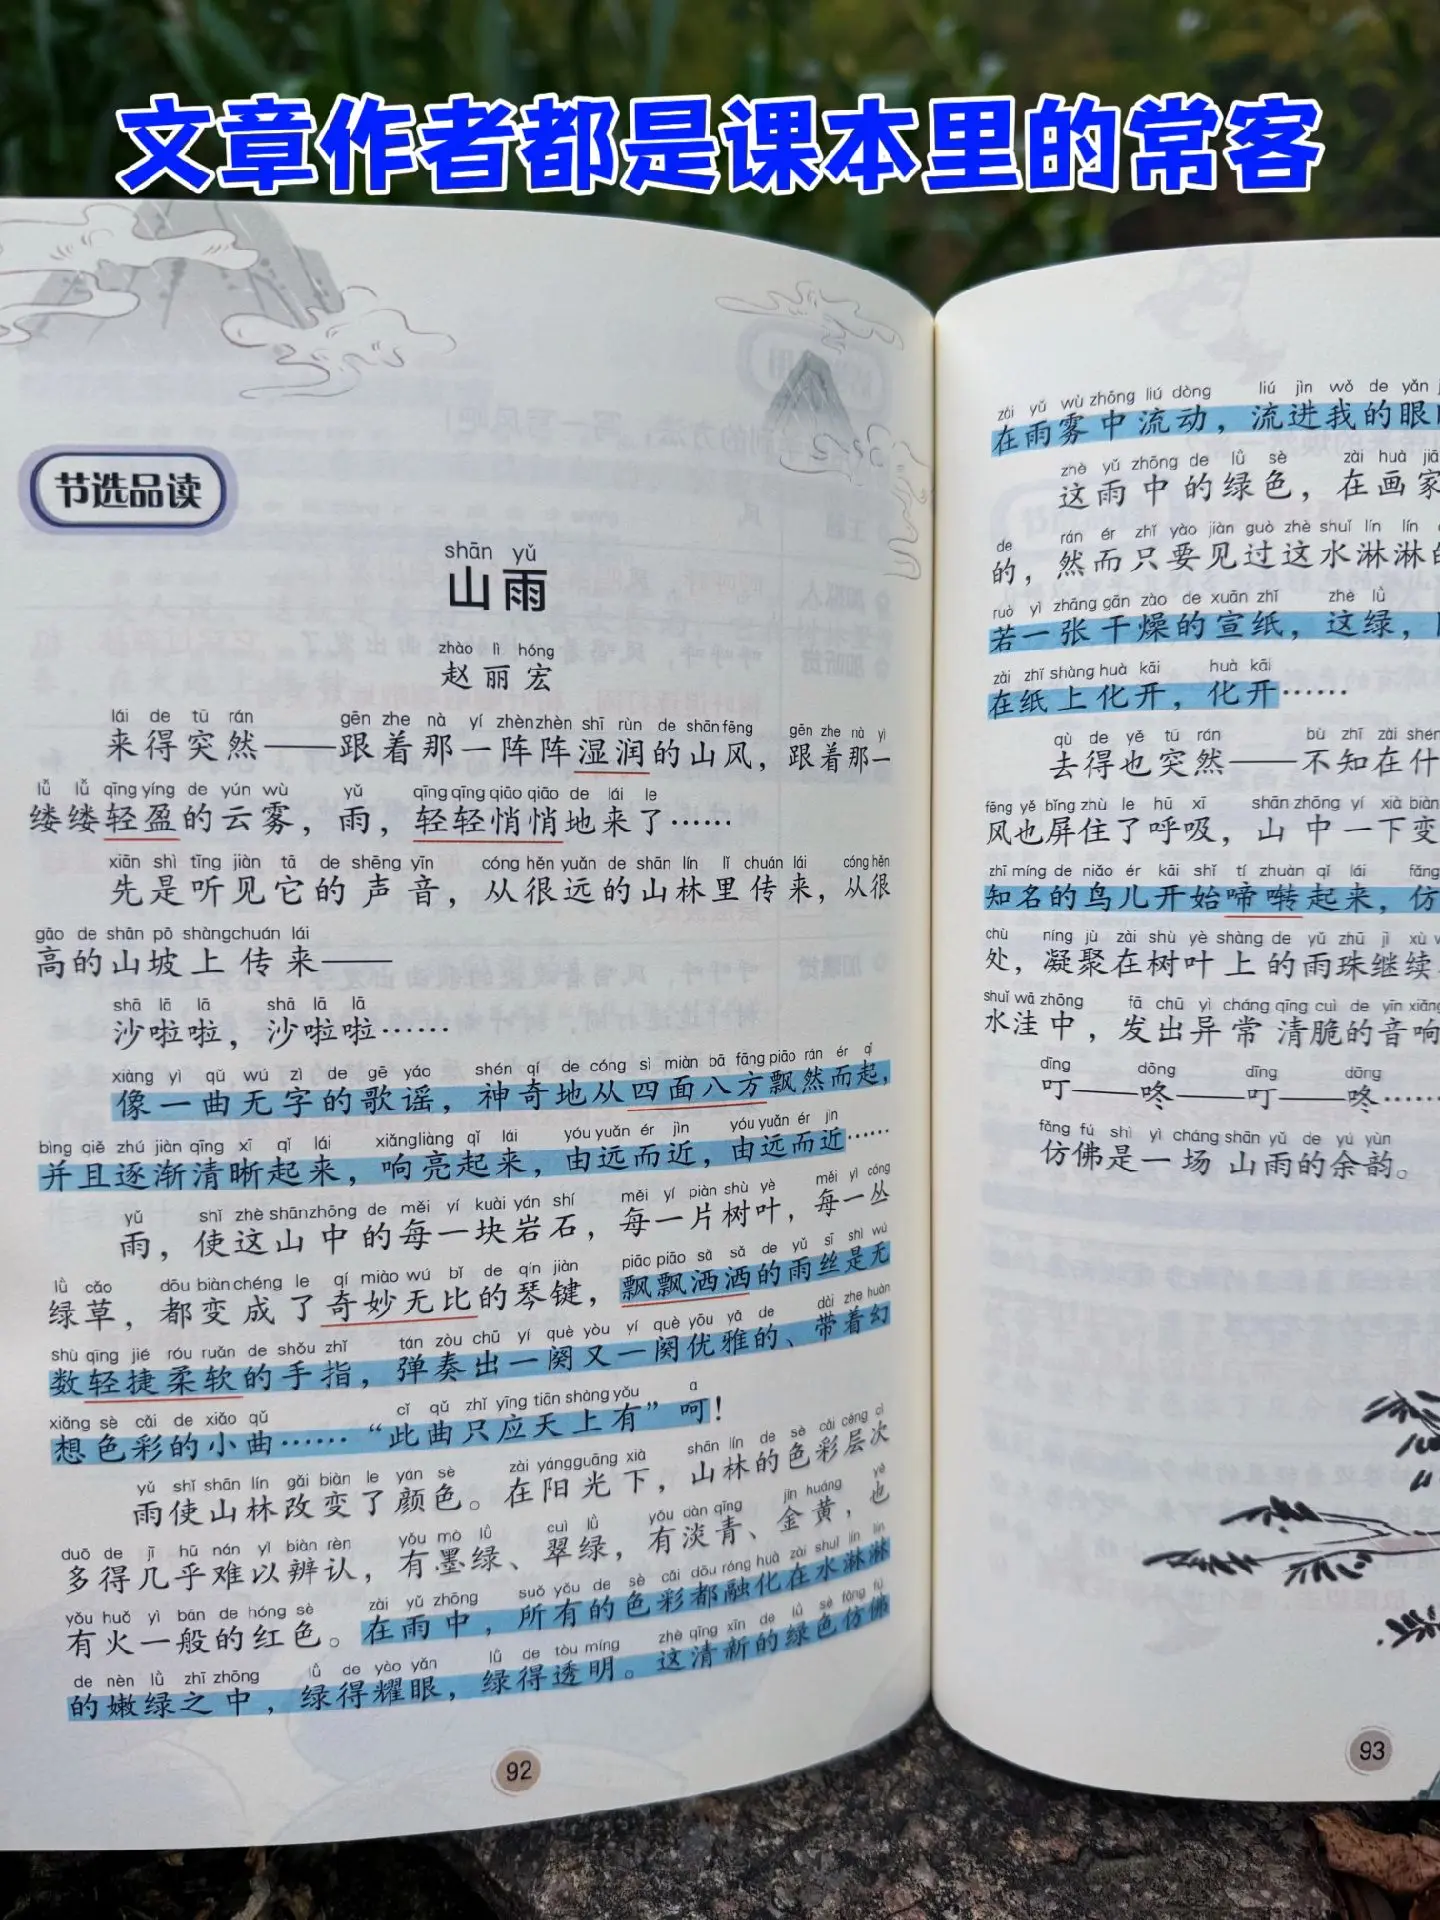 文章作者都是课本里的常客
节选品读
shān yǔ
山雨
zhào lì hóng
赵丽宏
lái de tū rán gēn zhe nà yí zhènzhèn shī rùn de shānfēng, gēn zhe nà yì
来得突然——跟着那一阵阵湿润的山风，跟着那一
lǚ lǚ qīngyíng de yún wù yǔ qīngqīngqiāoqiāo de lái le
缕缕轻盈的云雾，雨，轻轻悄悄地来了……
xiān shì tīng jiàn tā de shēng yīn cóng hěn yuǎn de shān lín lǐ chuán lái cóng hěn
先是听见它的声音，从很远的山林里传来，从很
gāo de shān pō shàngchuán lái
高的山坡上传来——
shā lā lā shā lā lā
沙啦啦，沙啦啦……
xiàng yì qǔ wú zì de gē yáo shén qí de cóng sì miàn bā fāng piāo rán ér qǐ
像一曲无字的歌谣，神奇地从四面八方飘然而起，
bìng qiě zhú jiàn qīng xī qǐ lái xiǎngliàng qǐ lái yóu yuǎn ér jìn yóu yuǎn ér jìn
并且逐渐清晰起来，响亮起来，由远而近，由远而近……
yǔ shǐ zhè shānzhōng de měi yí kuài yán shí měi yí piàn shù yè měi yì cóng
雨，使这山中的每一块岩石，每一片树叶，每一丛
lǜ cǎo dōu biàn chéng le qí miào wú bǐ de qín jiàn piāo piāo sǎ sǎ de yǔ sī shì wú
绿草，都变成了奇妙无比的琴键，飘飘洒洒的雨丝是无
shù qīng jié róu ruǎn de shǒu zhǐ tán zòu chū yí què yòu yí què yōu yǎ de dài zhe huàn
数轻捷柔软的手指，弹奏出一阕又一阕优雅的、带着幻
xiǎng sè cǎi de xiǎo qǔ cǐ qǔ zhǐ yīng tiān shàng yǒu a
想色彩的小曲……“此曲只应天上有”呵！
yǔ shǐ shān lín gǎi biàn le yán sè zài yángguāng xià shān lín de sè cǎi céng cì
雨使山林改变了颜色。在阳光下，山林的色彩层次
duō de jī hū nán yǐ biàn rèn yǒu mò lǜ cuì lǜ yǒu dàn qīng jīn huáng yě
多得几乎难以辨认，有墨绿、翠绿，有淡青、金黄，也
yǒu huǒ yì bān de hóng sè zài yǔ zhōng suǒ yǒu de sè cǎi dōu róng huà zài shuǐ lín lín
有火一般的红色。在雨中，所有的色彩都融化在水淋淋
de nèn lǜ zhī zhōng lǜ de yào yǎn lǜ de tòu míng zhè qīng xīn de lǜ sè fǎng fú
的嫩绿之中，绿得耀眼，绿得透明。这清新的绿色仿佛
92
zài yǔ wù zhōng liú dòng liú jìn wǒ de yǎn
在雨雾中流动，流进我的眼
zhè yǔ zhōng de lǜ sè zài huà jiā
这雨中的绿色，在画家
de rán ér zhǐ yào jiàn guò zhè shuǐ lín lín
的，然而只要见过这水淋淋的
ruò yì zhāng gān zào de xuān zhǐ zhè lǜ
若一张干燥的宣纸，这绿，
zài zhǐ shàng huà kāi huà kāi
在纸上化开，化开……
qù de yě tū rán bù zhī zài shén
去得也突然——不知在什
fēng yě bǐng zhù le hū xī shān zhōng yí xià biàn
风也屏住了呼吸，山中一下变
zhī míng de niǎo ér kāi shǐ tí zhuàn qǐ lái fǎng
知名的鸟儿开始啼啭起来，仿
chù níng jù zài shù yè shàng de yǔ zhū jì xù
处，凝聚在树叶上的雨珠继续
shuǐ wā zhōng fā chū yì cháng qīng cuì de yīn xiǎng
水洼中，发出异常清脆的音响
dīng dōng dīng dōng
叮——咚——叮——咚……
fǎng fú shì yì cháng shān yǔ de yú yùn
仿佛是一场山雨的余韵。
93